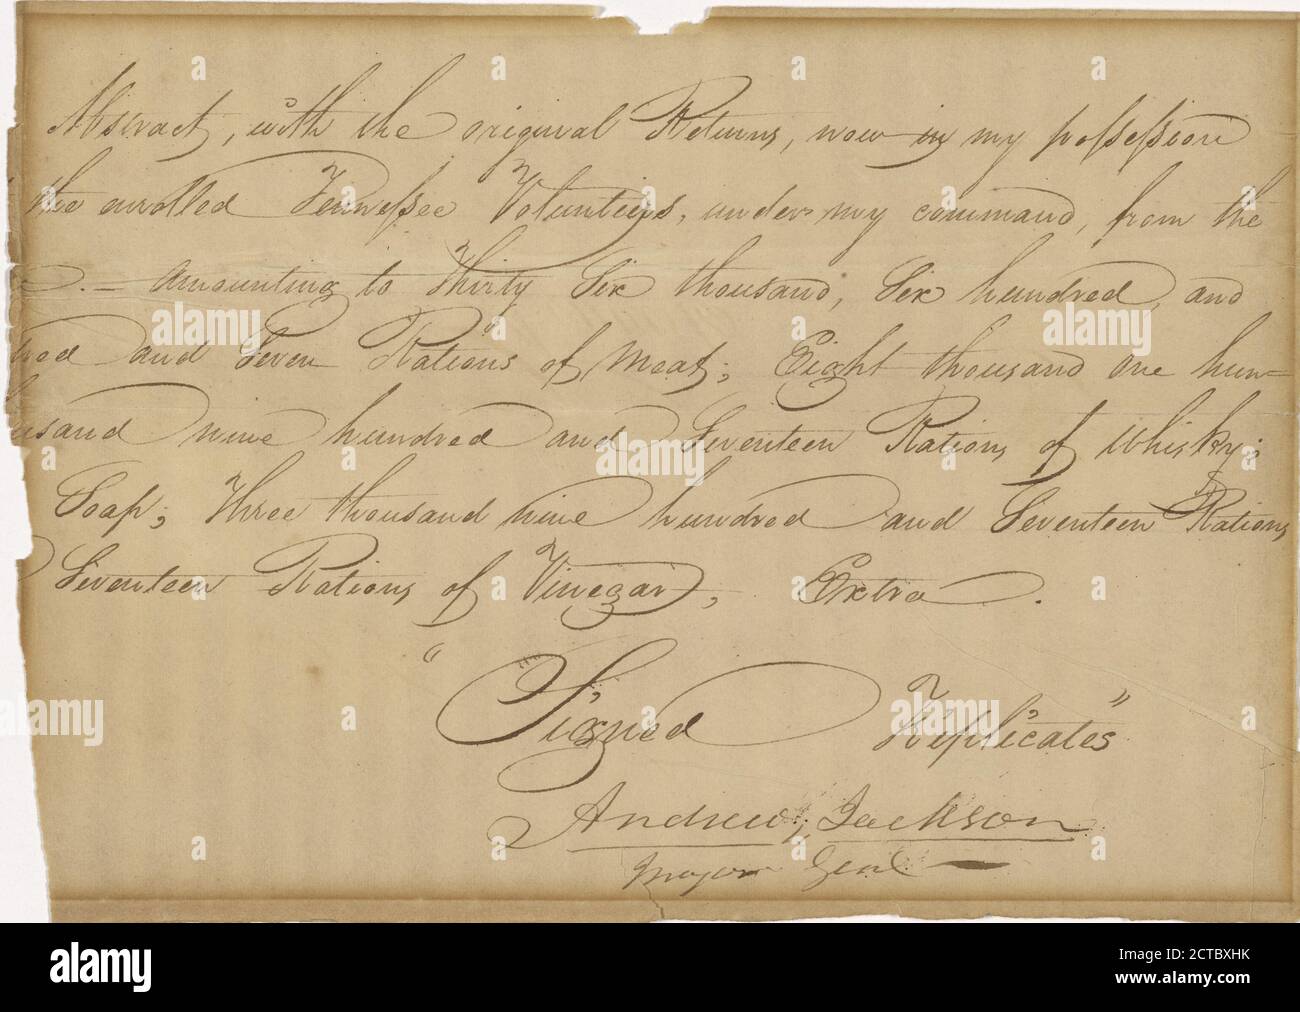 Abstract, with the original Returns, now in my possession
the enrolled Tennessee Volunteers, under my command, from the
. — amounting to Thirty Six thousand, Six hundred, and
dred and Seven Rations of Meat; Eight thousand one hun=
usand nine hundred and Seventeen Rations of Whisky;
Soap; Three thousand nine hundred and Seventeen Rations
Seventeen Rations of Vinegar, Extra.
"Signed Replicates"
Andrew Jackson
Major Genl
alamy
Image ID: 2CTBXHK
www.alamy.com